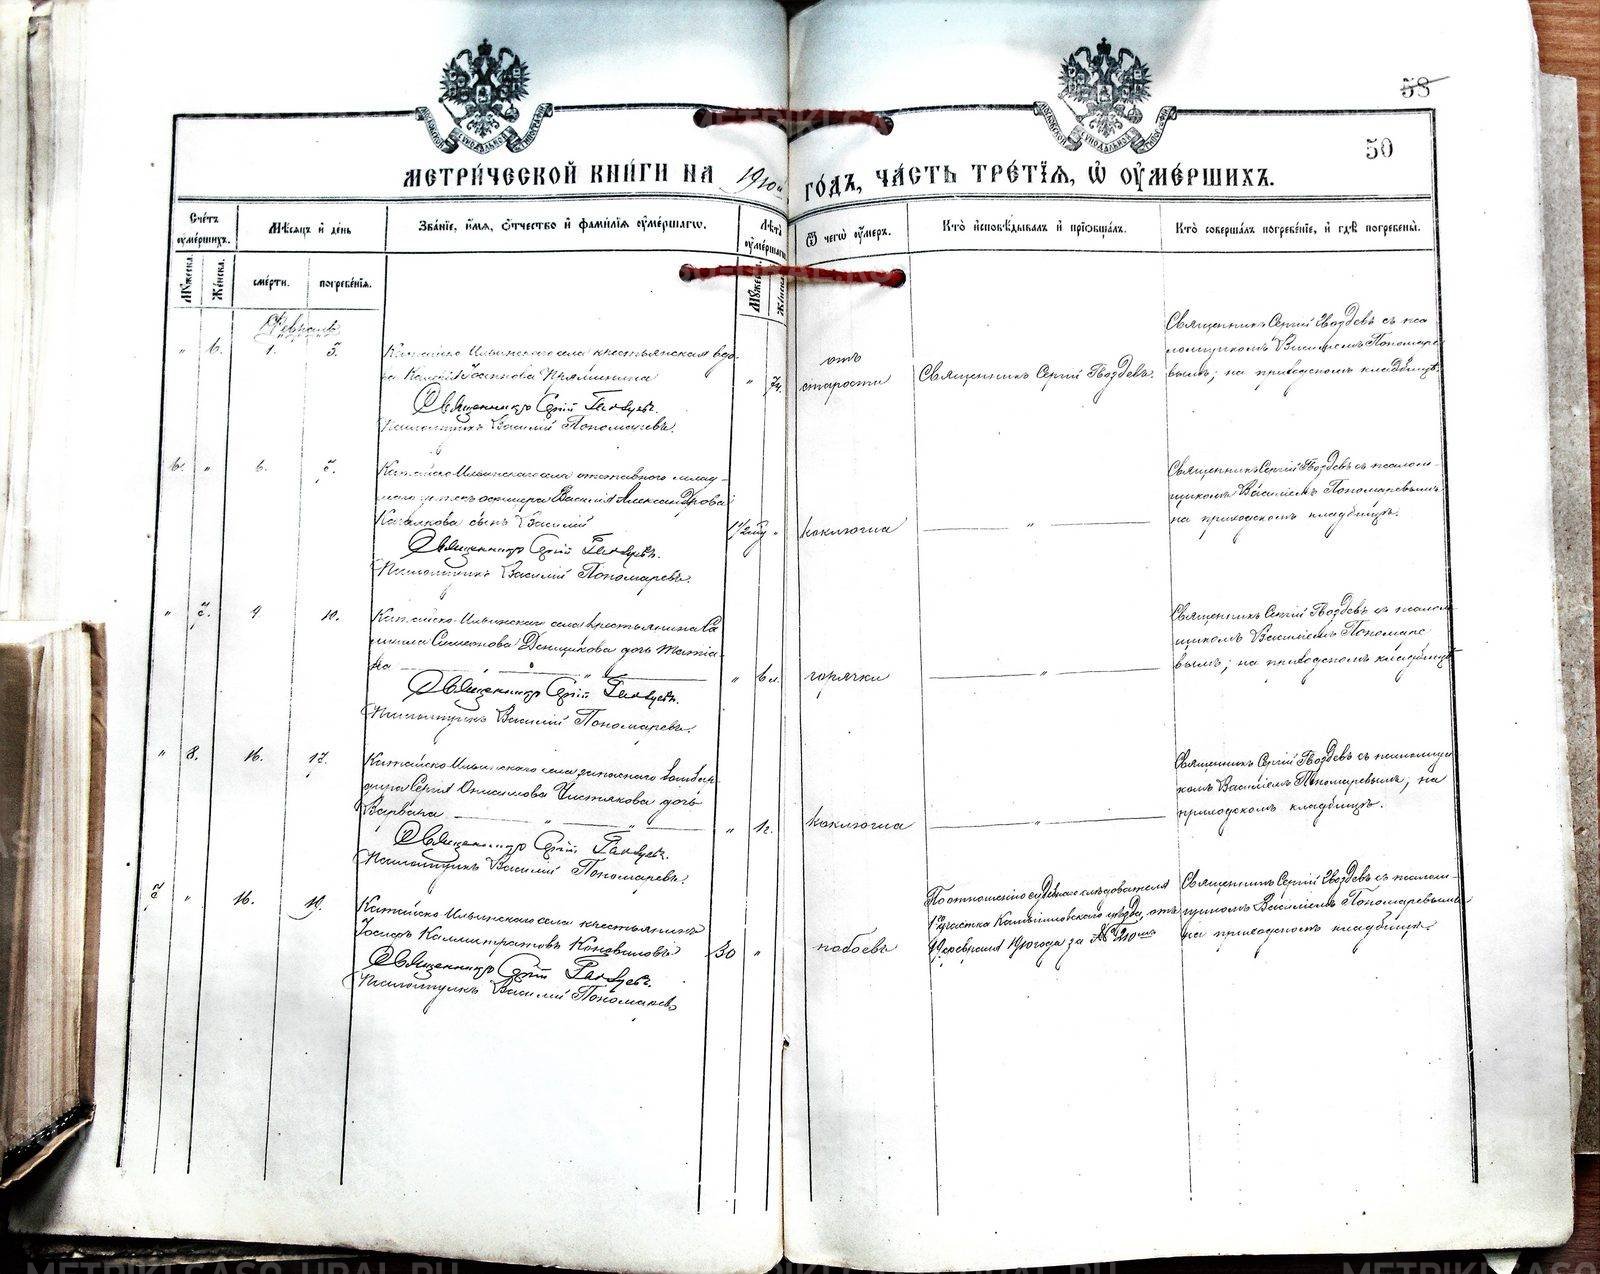 58
50
МЕТРИ́ЧЕСКОЙ КНИ́ГИ НА 1910й ГО́ДЪ, ЧА́СТЬ ТРЕ́ТІѦ, Ѿ ОУМЕ́РШИХЪ.
Сче́тъ оуме́ршихъ.
Мѣ́сѧцъ и҆ де́нь
Зва́нїе, и҆́мѧ, ѻ҆́тчество и҆ фами́лїѧ оуме́ршагѡ.
Лѣ́та оуме́ршагѡ
Ѿ чегѡ̀ оу́меръ.
Кто̀ и҆сповѣ́дывалъ и҆ прїѻбща́лъ.
Кто̀ соверша́лъ погребе́нїе, и҆ гдѣ̀ погребены̀.
Мꙋ́жеска.
Же́нска.
сме́рти.
погребе́нїѧ.
Мꙋ́жеска
Же́нска
Февраль
" 6. 1. 3.
Катайско-Ильинскаго села крестьянская вдо-
ва Іоаннова
Священникъ Сергій Гвоздевъ.
Псаломщикъ Василій Пономаревъ.
" 74.
отъ
старости
Священникъ Сергій Гвоздевъ.
Священникъ Сергій Гвоздевъ съ пса
ломщикомъ Василіемъ Пономаре
вымъ; на приходскомъ кладбищѣ.
6. " 6.
Катайско-Ильинскаго села отставного млад-
шаго унтеръ офицера Василія Александрова
сынъ Василій
Священникъ Сергій Гвоздевъ.
Псаломщикъ Василій Пономаревъ.
коклюша
"
Священникъ Сергій Гвоздевъ съ псалом-
щикомъ Василіемъ Пономаревымъ
на приходскомъ кладбищѣ.
" 7. 9. 10.
Катайско-Ильинскаго села крестьянина Са
Симеонова Денщикова дочь Татіа-
на "
Священникъ Сергій Гвоздевъ.
Псаломщикъ Василій Пономаревъ.
" 6 л.
горячки
"
Священникъ Сергій Гвоздевъ съ псалом
щикомъ Василіемъ Пономаре
вымъ; на приходскомъ кладбищѣ
" 8. 16. 17.
Катайско-Ильинскаго села запаснаго бомбар-
дира Сергія Онисимова Чистякова дочь
Варвара " "
Священникъ Сергій Гвоздевъ.
Псаломщикъ Василій Пономаревъ.
" 1 г.
коклюша
"
Священникъ Сергій Гвоздевъ съ псаломщи
комъ Василіемъ Пономаревымъ; на
приходскомъ кладбищѣ.
7 " 16. 19.
Катайско Ильинскаго села крестьянинъ
Іосифъ Каллистратовъ Коноваловъ
Священникъ Сергій Гвоздевъ.
Псаломщикъ Василій Пономаревъ
30 "
побоевъ
По отношенію судебнаго слѣдователя
1 участка Камышловскаго уѣзда, отъ
19 февраля 1910 года за № 210мъ
Священникъ Сергій Гвоздевъ съ псалом-
щикомъ Василіемъ Пономаревымъ
на приходскомъ кладбищѣ